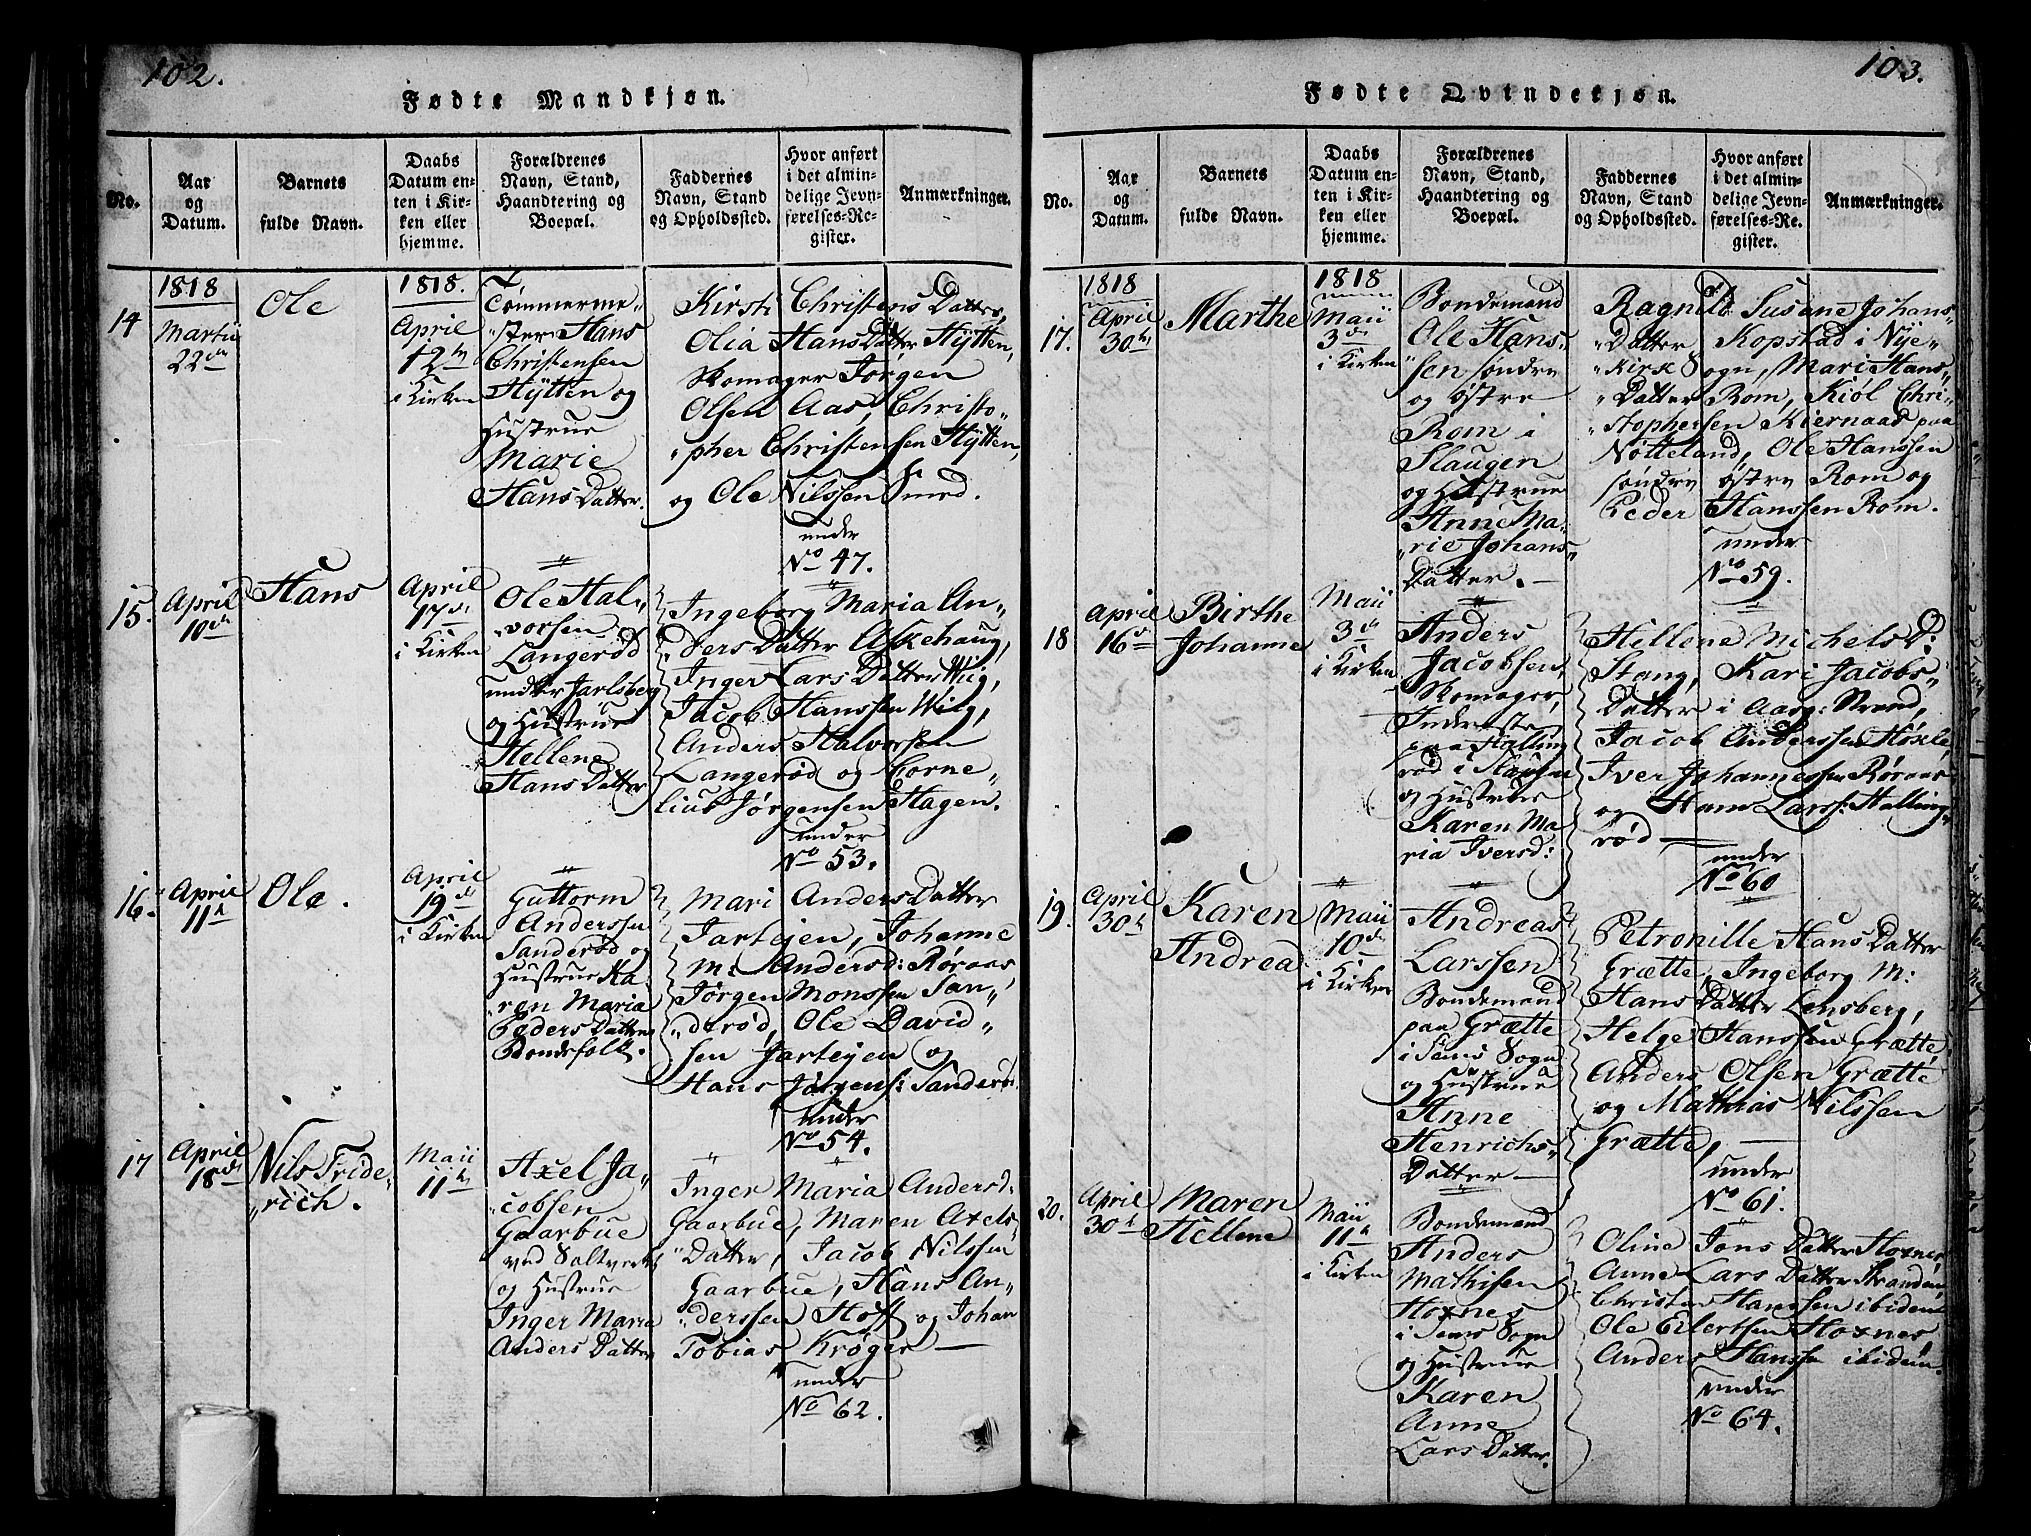 102.
Fødte Mandkjøn.
No.
Aar
og
Datum.
Barnets
fulde Navn.
Daabs
Datum en-
ten i Kir-
ken eller
hjemme.
Forældrenes
Navn, Stand,
Haandtering og
Boepæl.
Faddernes
Navn, Stand
og Opholdssted.
Hvor anført
i det almin-
delige Jevn-
førelses-Re-
gister.
Anmærkninger.
14
1818
Martii
22de
Ole
1818.
April
12te
i Kirken
Tømmerme„
„ster Hans
Christensen
Hÿtten og
Hustrue
Marie
Hans Datter.
Kirsti Christens Datter,
Olia Hans Datter Hÿtten,
Skomager Jørgen
Olsen Aas, Christo„
„pher Christensen Hÿtten,
og Ole Nilssen Smed.
under
No 47.
15.
April
10de
Hans
April
17de
i Kirken
Ole Hal„
„vorsen
Langerød
under Jarlsberg
og Hustrue
Hellene
Hans Datter
Ingeborg Maria An„
„ders Datter Askehaug,
Inger Lars Datter Wiig,
Jacob Hanssen Wiig,
Anders Halvorsen
Langerød og Corne„
lius Jørgensen Hagen.
under
No 53.
16.
April
11te
Ole.
April
19de
i Kirken
Guttorm
Anderssen
Sanderød og
Hustrue Ka„
„ren Maria
Peders Datter
Bondefolk.
Mari Anders Datter
Jartejen, Johanne
M: Andersd: Røraas,
Jørgen Monssen San„
„derød, Ole David„
sen Jartejen og
Hans Jørgens: Sanderød
under
No 54.
17
April
18de
Nils Fride„
„rich.
Maii
11te
Axel Ja„
„cobsen
Gaarbue
ved Saltverket
og Hustrue
Inger Maria
Anders Datter
Inger Maria Andersd:
Gaarbue, Maren Axels
„Datter, Jacob Nilssen
Gaarbue, Hans An„
„derssen Hoff og Johan
Tobias Krøger —
under
No 62.
103.
Fødte Qvindekjøn.
No.
Aar
og
Datum.
Barnets
fulde Navn.
Daabs
Datum en-
ten i Kir-
ken eller
hjemme.
Forældrenes
Navn, Stand,
Haandtering og
Boepæl.
Faddernes
Navn, Stand
og Opholdssted.
Hvor anført
i det almin-
delige Jevn-
førelses-Re-
gister.
Anmærkninger.
17.
1818
April
30te
Marthe
1818
Maii
3de
i Kirken
Bondemand
Ole Hans„
„sen søndre
og østre
Rom i
Slaugen
og Hustrue
Anne Ma„
„rie Johans„
Datter. —
Ragnild Susane Johans„
„Datter Kopstad i Nye„
„Kirke Sogn, Mari Hans„
„Datter Rom, Kiøl Chri„
„stophersen Kiernaad paa
Nøtteland, Ole Hanssen
søndre østre Rom og
Peder Hanssen Rom.
under
No 59.
18
April
16de
Birthe
Johanne
Maii
3de
i Kirken
Anders
Jacobsen,
Skomager,
Inderste
paa Halling
rød i Slaugen
og Hustrue
Karen Ma
ria Iversd:
Hellene Michels D:
Stang, Kari Jacobs„
Datter i Aasg: Strand,
Jacob Anderssen Høxle,
Iver Johannessen Røraas
og Hans Larss: Halling„
rød —
under
No 60
19.
April
30te
Karen
Andrea
Maii
10de
i Kirken
Andreas
Larssen
Bondemand
paa Grætte
i Sems Sogn
og Hustrue
Anne
Henrichs„
Datter —
Petronille Hans Datter
Grætte, Ingeborg M:
Hans Datter Lensberg,
Helge Hanssen Grætte,
Anders Olsen Grætte
og Mathias Nilssen
Grætte, —
under
No 61.
20.
April
30te
Maren
Hellene
Maii
11te
i Kirken
Bondemand
Anders
Mathisen
Hoxnes
i Sems Sogn
og Hustrue
Karen
Anne
Lars Datter.
Oline Jons Datter Hoxnes
Anne Lars Datter Stranden,
Christen Hanssen ibidem
Ole Eilertsen Hoxnes
Anders Hanssen ibidem.
under
No 64.